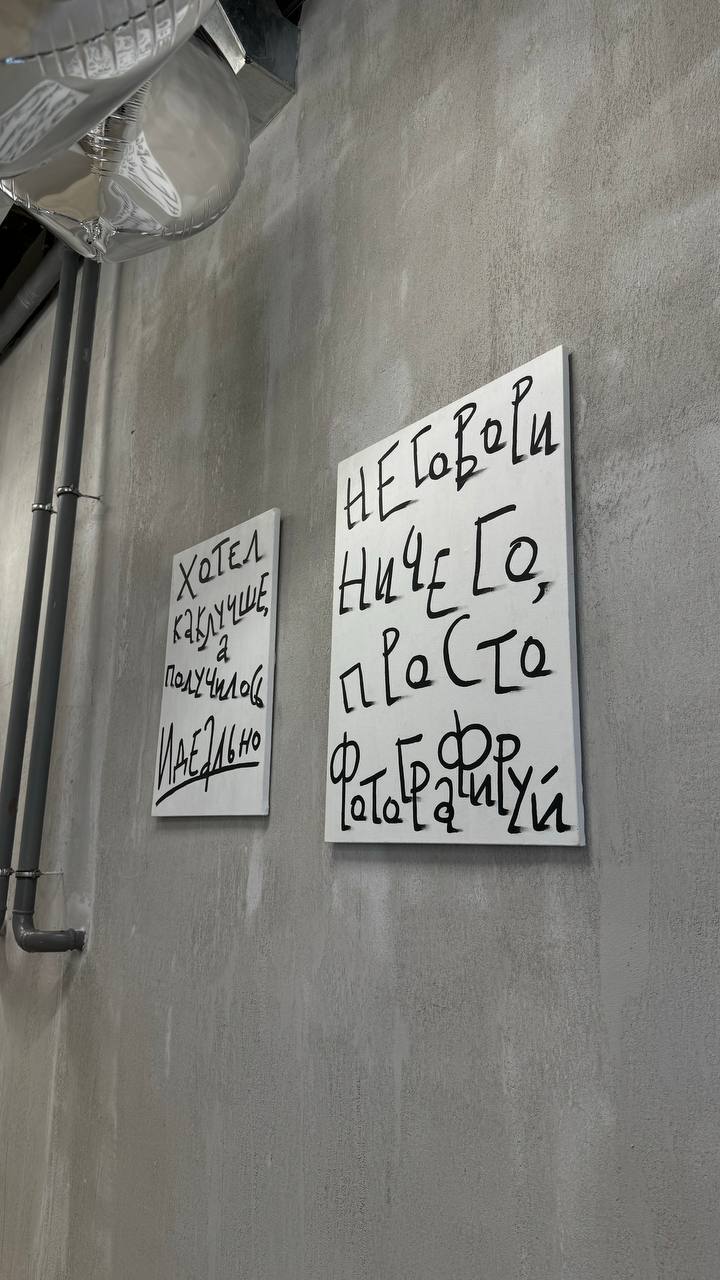 ХОТЕЛ
КАКЛУЧШЕ,
а
ПОЛУЧИЛОСЬ
ИДЕАЛЬНО
НЕ ГОВОРИ
НИЧЕГО,
ПРОСТО
ФОТОГРАФИРУЙ